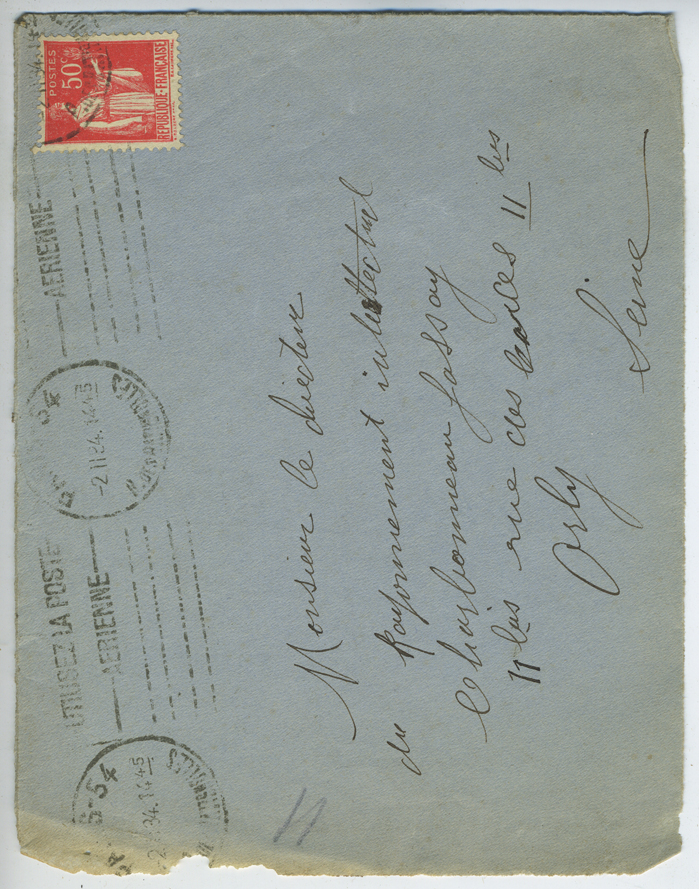 POSTES
50c
REPUBLIQUE-FRANÇAISE
AERIENNE
-2 II 34. 1445
UTILISEZ LA POSTE
AERIENNE
-2 II 34. 1445
Monsieur le directeur
du Rayonnement intellectuel
Charbonneau Lassay
11 bis rue des 11 bis
Orly Seine